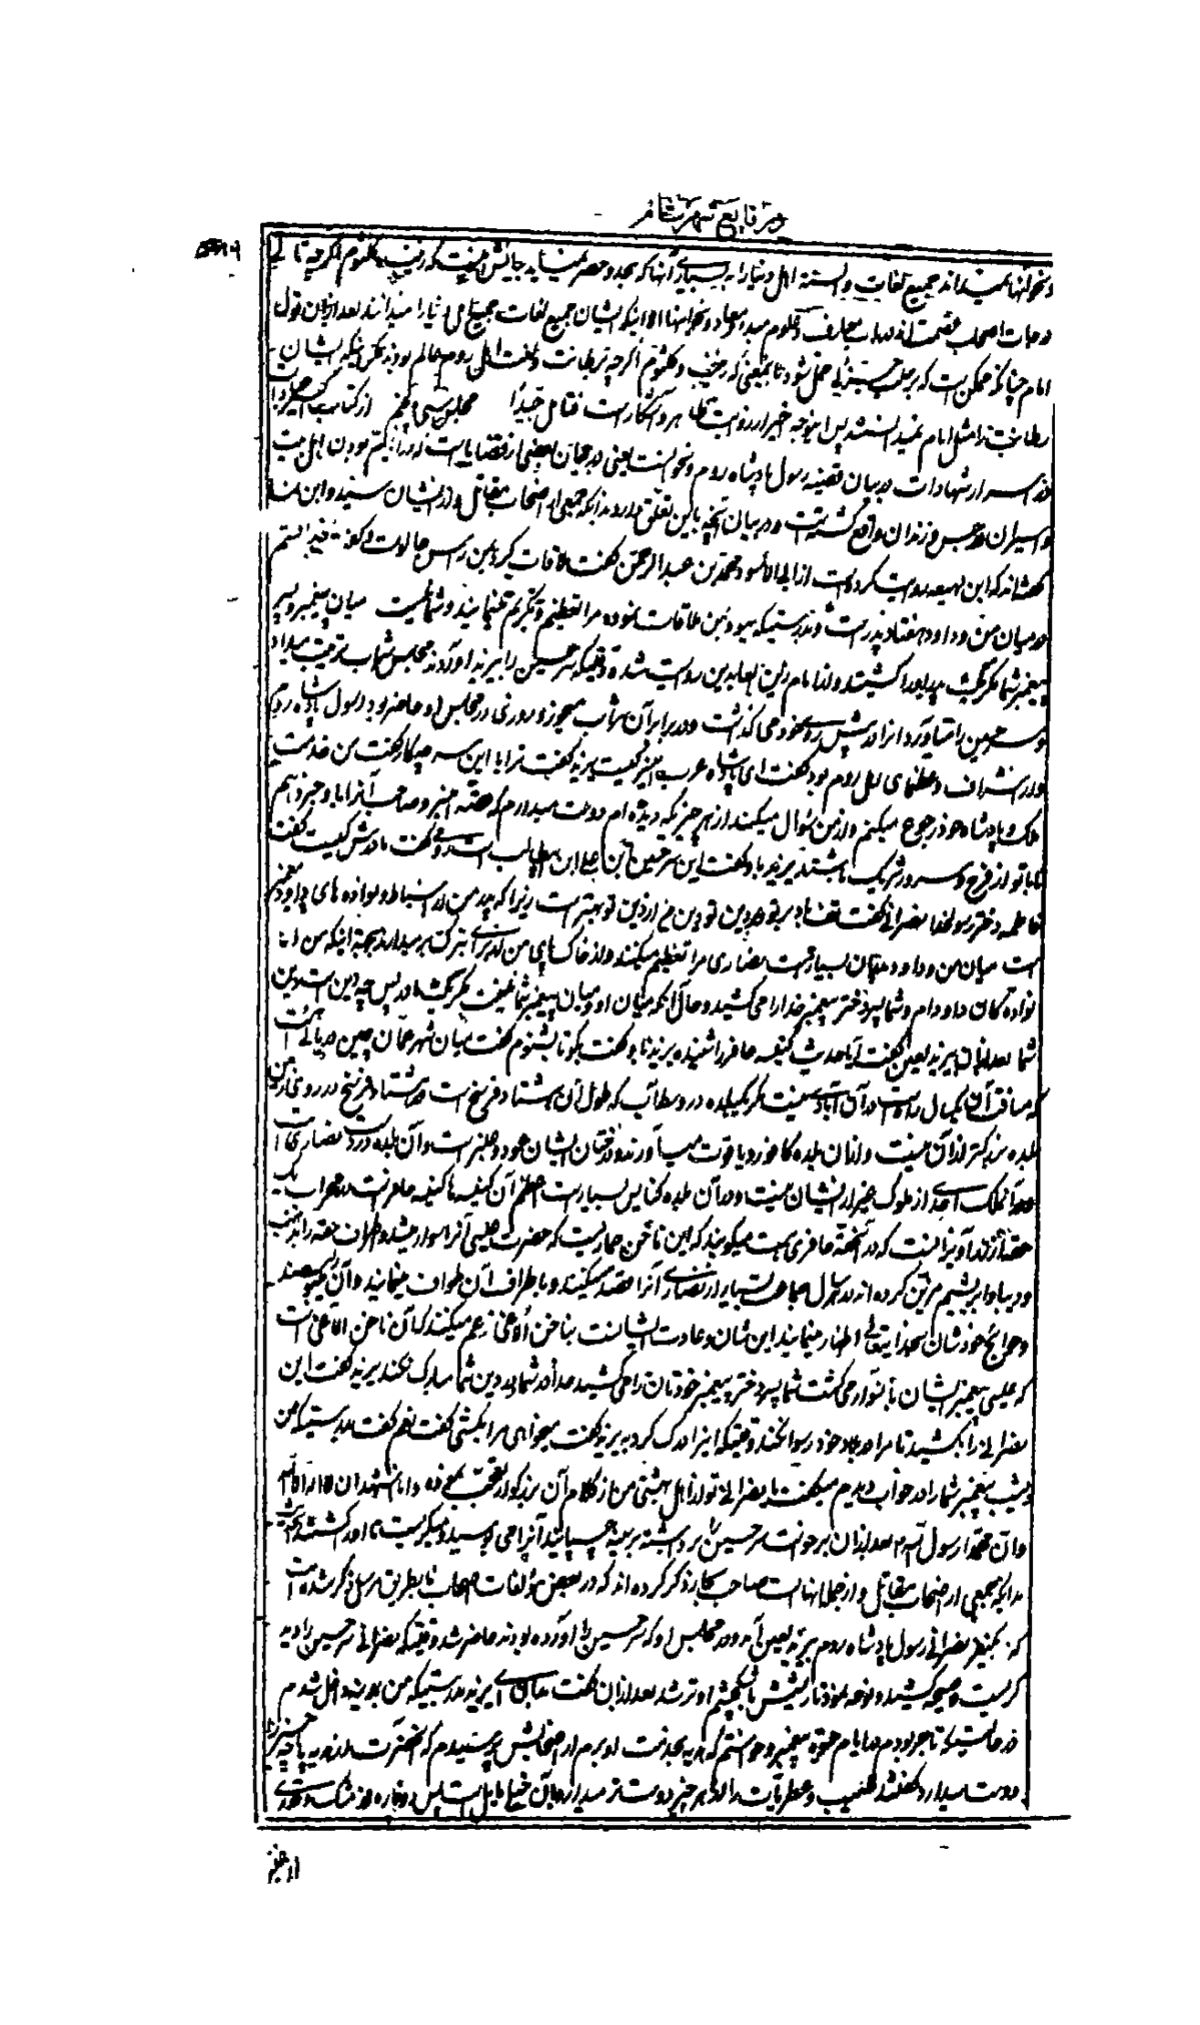 در وقایع شهر شام
و نحو آنها نمیداند جمیع لغات و السنه اهل دنیا را به بسیاری آنها که بحد و حصر نمیاید جایش نیست که زینب و کلثوم اگر چه تالی
درجات اصحاب عصمت اند در باب معارف و علوم مبدء و معاد و نحو اینها اما اینکه ایشان جمیع لغات جمیع اهل دنیا را میدانند بعد از بیان قول
امام چنانکه ممکن است که بر مطلب حمل شود تا بمعنی که زینب و کلثوم اگر چه برطانت و لغت اهل روم عالم بودند مگر اینکه ایشان
رطانت را مثل امام نمیدانستند پس اینوجه خیر از روایت ظاهر و آشکار است فتامل جیدا مجلس سی و پنجم از کتاب اکسیر
در اسرار شهادات در بیان قضیه رسول پادشاه روم و نحو است یعنی در بیان بعضی از قضایا است
و اسیران در حبس و زندان واقع گشته است و در بیان آنچه باین تعلق دارد بدانکه جمعی از اصحاب مقاتل و از ایشان سید و ابن نما
گفته اند که ابن لهیعه روایت کرده است از ابی الاسود محمد بن عبد الرحمن گفت ملاقات کرد بمن راس جالوت و گفت
در میان من و داود هفتاد پدر است و بدرستیکه یهود بمن ملاقات نموده مرا تعظیم و تکریم مینمایند و شما نیست میان پیغمبر و پسر
پیغمبر شما مگر یک پدر او را کشتید و از امام زین العابدین روایت شده وقتیکه سر حسین را بیزید آوردند مجلس شراب ترتیب میداد
و سر حسین را میاورد آنرا در پیش روی خود می گذاشت و در برابر آن شراب میخورد و روزی در مجلس او حاضر بود رسول پادشاه روم
و از اشراف و عظمای اهل روم بود گفت ای پادشاه عرب این سر کیست یزید گفت ترا با این سر چه کار گفت من خدمت
ملک و پادشاه خود رجوع میکنم و از من سؤال میکند از هر چیز که دیده ام دوست میدارم که قصه این سر و صاحب آنرا باو خبر دهم
تا با تو در فرح و سرور شریک باشد یزید باو گفت این سر حسین بن علی ابن ابیطالب است گفت مادرش کیست گفت
فاطمه دختر رسولخدا نصرانی گفت تف باد بر تو و دین تو دین من از دین تو بهتر است زیرا که پدر من از اسباط و نواده های داود
است میان من و داود پدران بسیار است نصاری مرا تعظیم میکنند و از خاک پای من از برای تبرک بر میدارند بجهة اینکه من از
نواده کان داودام و شما پسر دختر پیغمبر خدا را می کشید و حال آنکه میان او و میان پیغمبر شما نیست مگر یک مادر پس چه دین است دین
شما بعد از آن یزید لعین گفت آیا حدیث کنیسه حافر را شنیده یزید باو گفت بگو تا بشنوم گفت میان شهر عمان و چین دریائی است
که مسافت آن یکسال راه است در آن آبادی نیست مگر یک بلده در وسط آب که طول آن هشتاد فرسخ است در هشتاد فرسخ در روی زمین
بلده بزرگتر از آن نیست و از آن بلده کافور و یاقوت میاورند و درختان ایشان عود و عنبر است و آن بلده در دست نصاری است
و در آن ملک احدی از ملوک غیر از ایشان نیست و در آن بلده کنایس بسیار است اعظم آن کنیسه ها کنیسه حافر است در محراب یک
حقه از زر آویزانست که در آن حقه حافری هست میگویند که این ناخن حماریست که حضرت عیسی آنرا سوار میشد و اطراف حقه را بذهب
و دیبا و ابریشم مزین کرده اند در هر سال جماعت بسیار از نصاری آنرا قصد میکنند و باطراف آن طواف مینمایند و آن را میبوسند
و حوائج خودشان بخدایتعالی اظهار مینمایند این شان و عادت ایشانست بناخن الاغی زعم میکنند که آن ناخن الاغی است
که عیسی پیغمبر ایشان بآن سوار می گشت شما پسر دختر پیغمبر خودتان را می کشید خدا در شما و در دین شما مبارک نکند یزید گفت این
نصرانی را بکشید تا مرا در بلاد خود رسوا نکند وقتیکه اینرا درک کرد به یزید گفت میخواهی مرا بکشی گفت نعم گفت بدرستیکه من
دیشب پیغمبر شما را در خواب دیدم میگفت یا نصرانی تو از اهل بهشتی من از کلام آن بزرگوار تعجب نموده و انا اشهد ان لا اله الا الله
و ان محمدا رسول الله بعد از آن برخواست سر حسین را برداشته بر سینه چسبانید آنرا می بوسید و میگریست تا او را کشتند
بدانکه جمعی از اصحاب مقاتل و از جمله آنها است صاحب بحار ذکر کرده اند که در بعض مؤلفات اصحاب ما بطریق مرسل ذکر شده است
که یک نفر نصرانی رسول پادشاه روم بر یزید لعین آمد و در مجلس او که سر حسین را آورده بودند حاضر شد وقتیکه نصرانی سر حسین را دید
گریست و صیحه کشید و نوحه نمود تا ریشش با اشک چشم او تر شد بعد از آن گفت بدان ای یزید بدرستیکه من بمدینه داخل شدم
در حالتیکه تاجر بودم در ایام حیوة پیغمبر و خواستم که هدیه بخدمت او برم از اصحابش پرسیدم که آنحضرت از هدیه چه چیز را
دوست میدارد گفتند که طیب و عطریات را از هر چیز دوست تر میدارد و بآن خیلی مایل است پس دو نافه از مشک و قدری
از عنبر